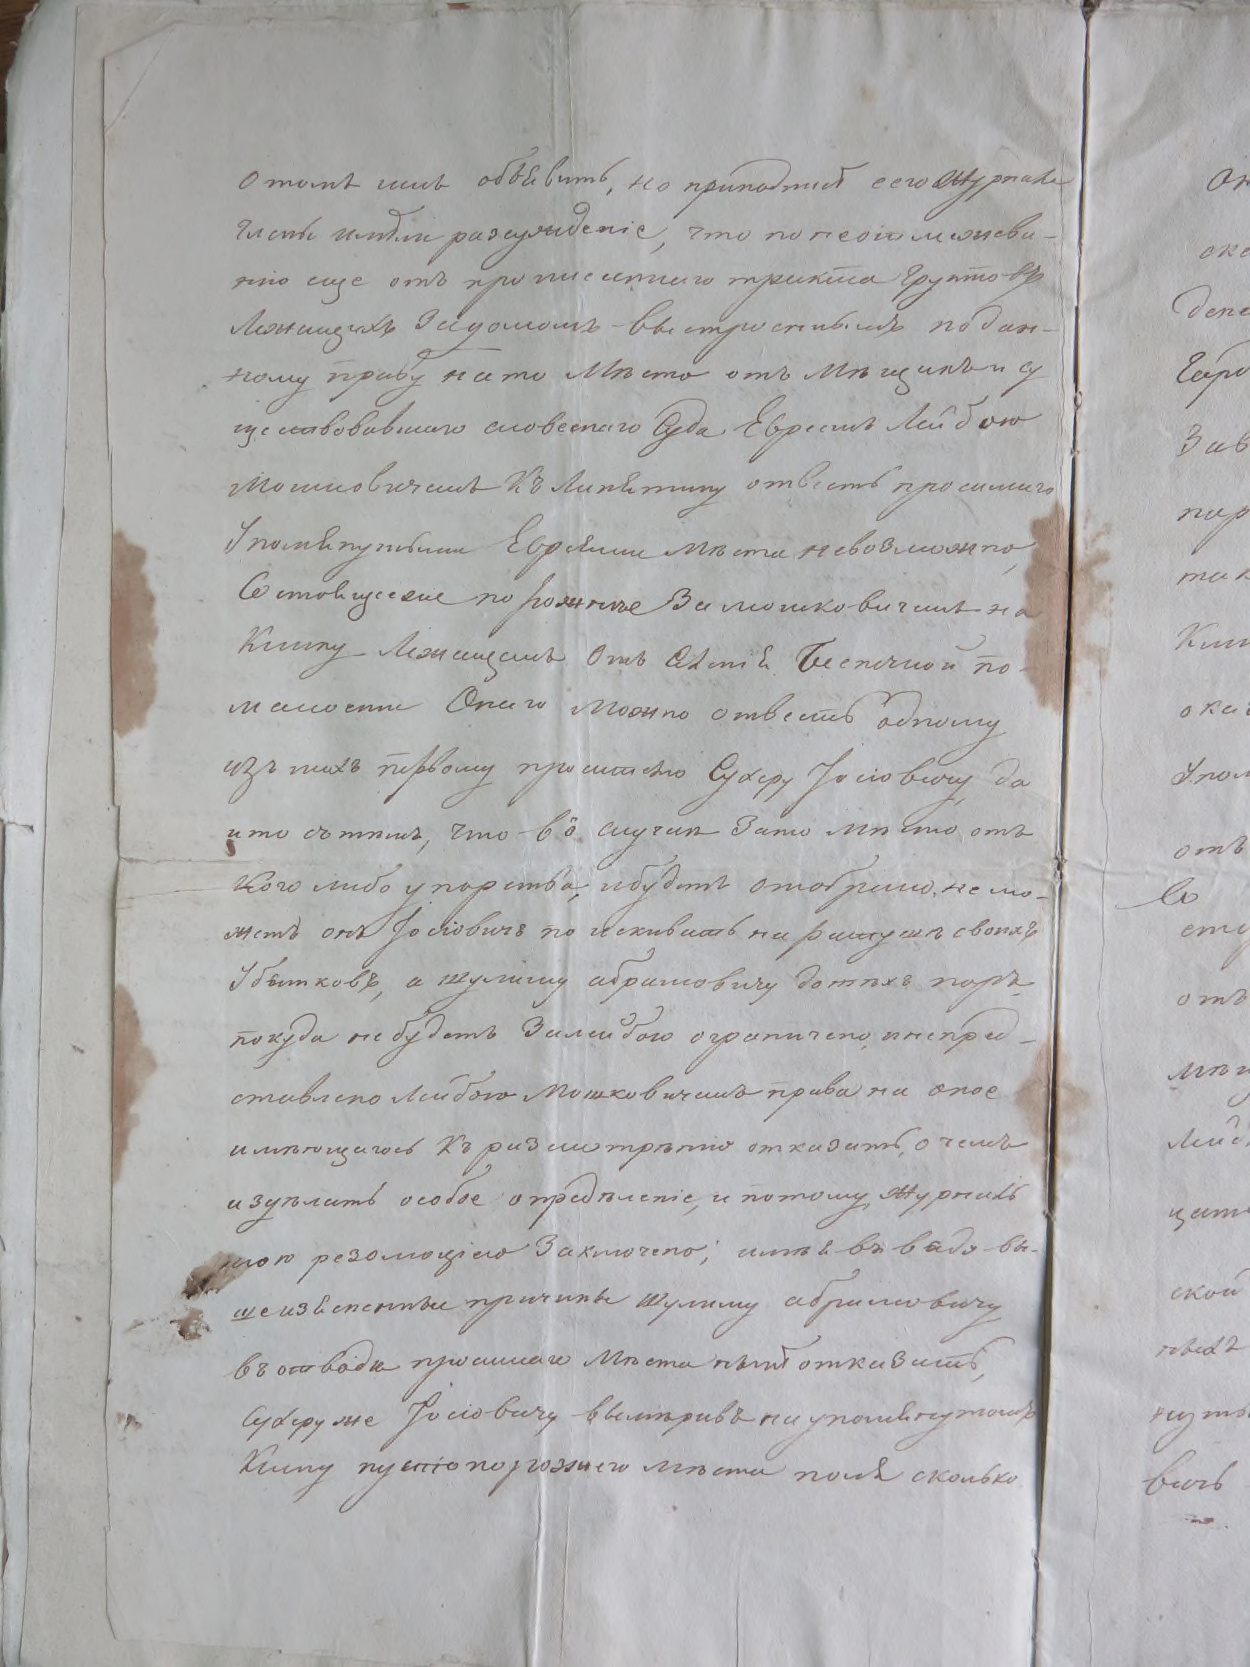 о томъ имъ объявить, но припод^тіи сего журнала
члены имѣли разсужденіе, что по неоімѣнева-
нію еще отъ прописаннаго тракта грунтовъ
лежащихъ задомомъ выстроеннымъ подан-
ному праву на то мѣсто отъ мѣщанъ и су
ществовавшаго словеснаго суда Евреемъ Лейбою
Мошковичемъ къ отвесть просимаго
упомянутыми Евреями мѣста невозможно,
Состоящееже порожнее за Мошковичемъ на
Клину лежащемъ отъ Беспечной по
малости Онаго можно отвесть одному
изъ нихъ первому просителю Сухеру Іосіовичу, да
и то съ тѣмъ, что въ случаѣ за то мѣсто отъ
Кого либо упорства, и будетъ отобрано, не мо-
жетъ онъ Іосіовичъ поискивать на ратушѣ своихъ
Убытковъ, а Шулиму Абрамовичу дотѣхъ поръ,
покуда не будетъ за Лейбою ограничено, и непред-
ставлено Лейбою Мошковичемъ права на оное
имѣющагось къ разсмотрѣнію отказать, о чемъ
издѣлать особое опредѣленіе, и потому журналь
ною резолюціею Заключено; имѣя въ видѣ вы-
шеизъясненныя причины Шулиму Абрамовичу
въ отводѣ просимаго мѣста нынѣ отказать,
Сухеру же Іосіовичу вымѣривъ на упомянутомъ
Клину пустопорожнего мѣста поля сколько